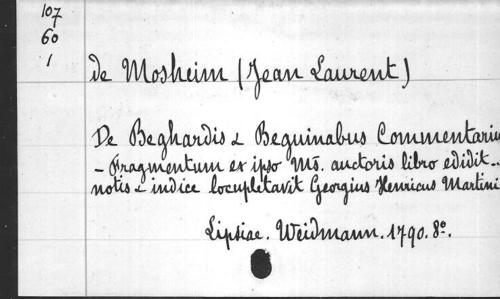 107
60
1
de Mosheim (Jean Laurent)
De Beghardis & Beguinabus Commentarius
- Fragmentum ex ipso Ms. auctoris libro edidit..
notis & indice locupletavit Georgius Henricus Martini
Lipsiae. Weidmann. 1790. 8o.